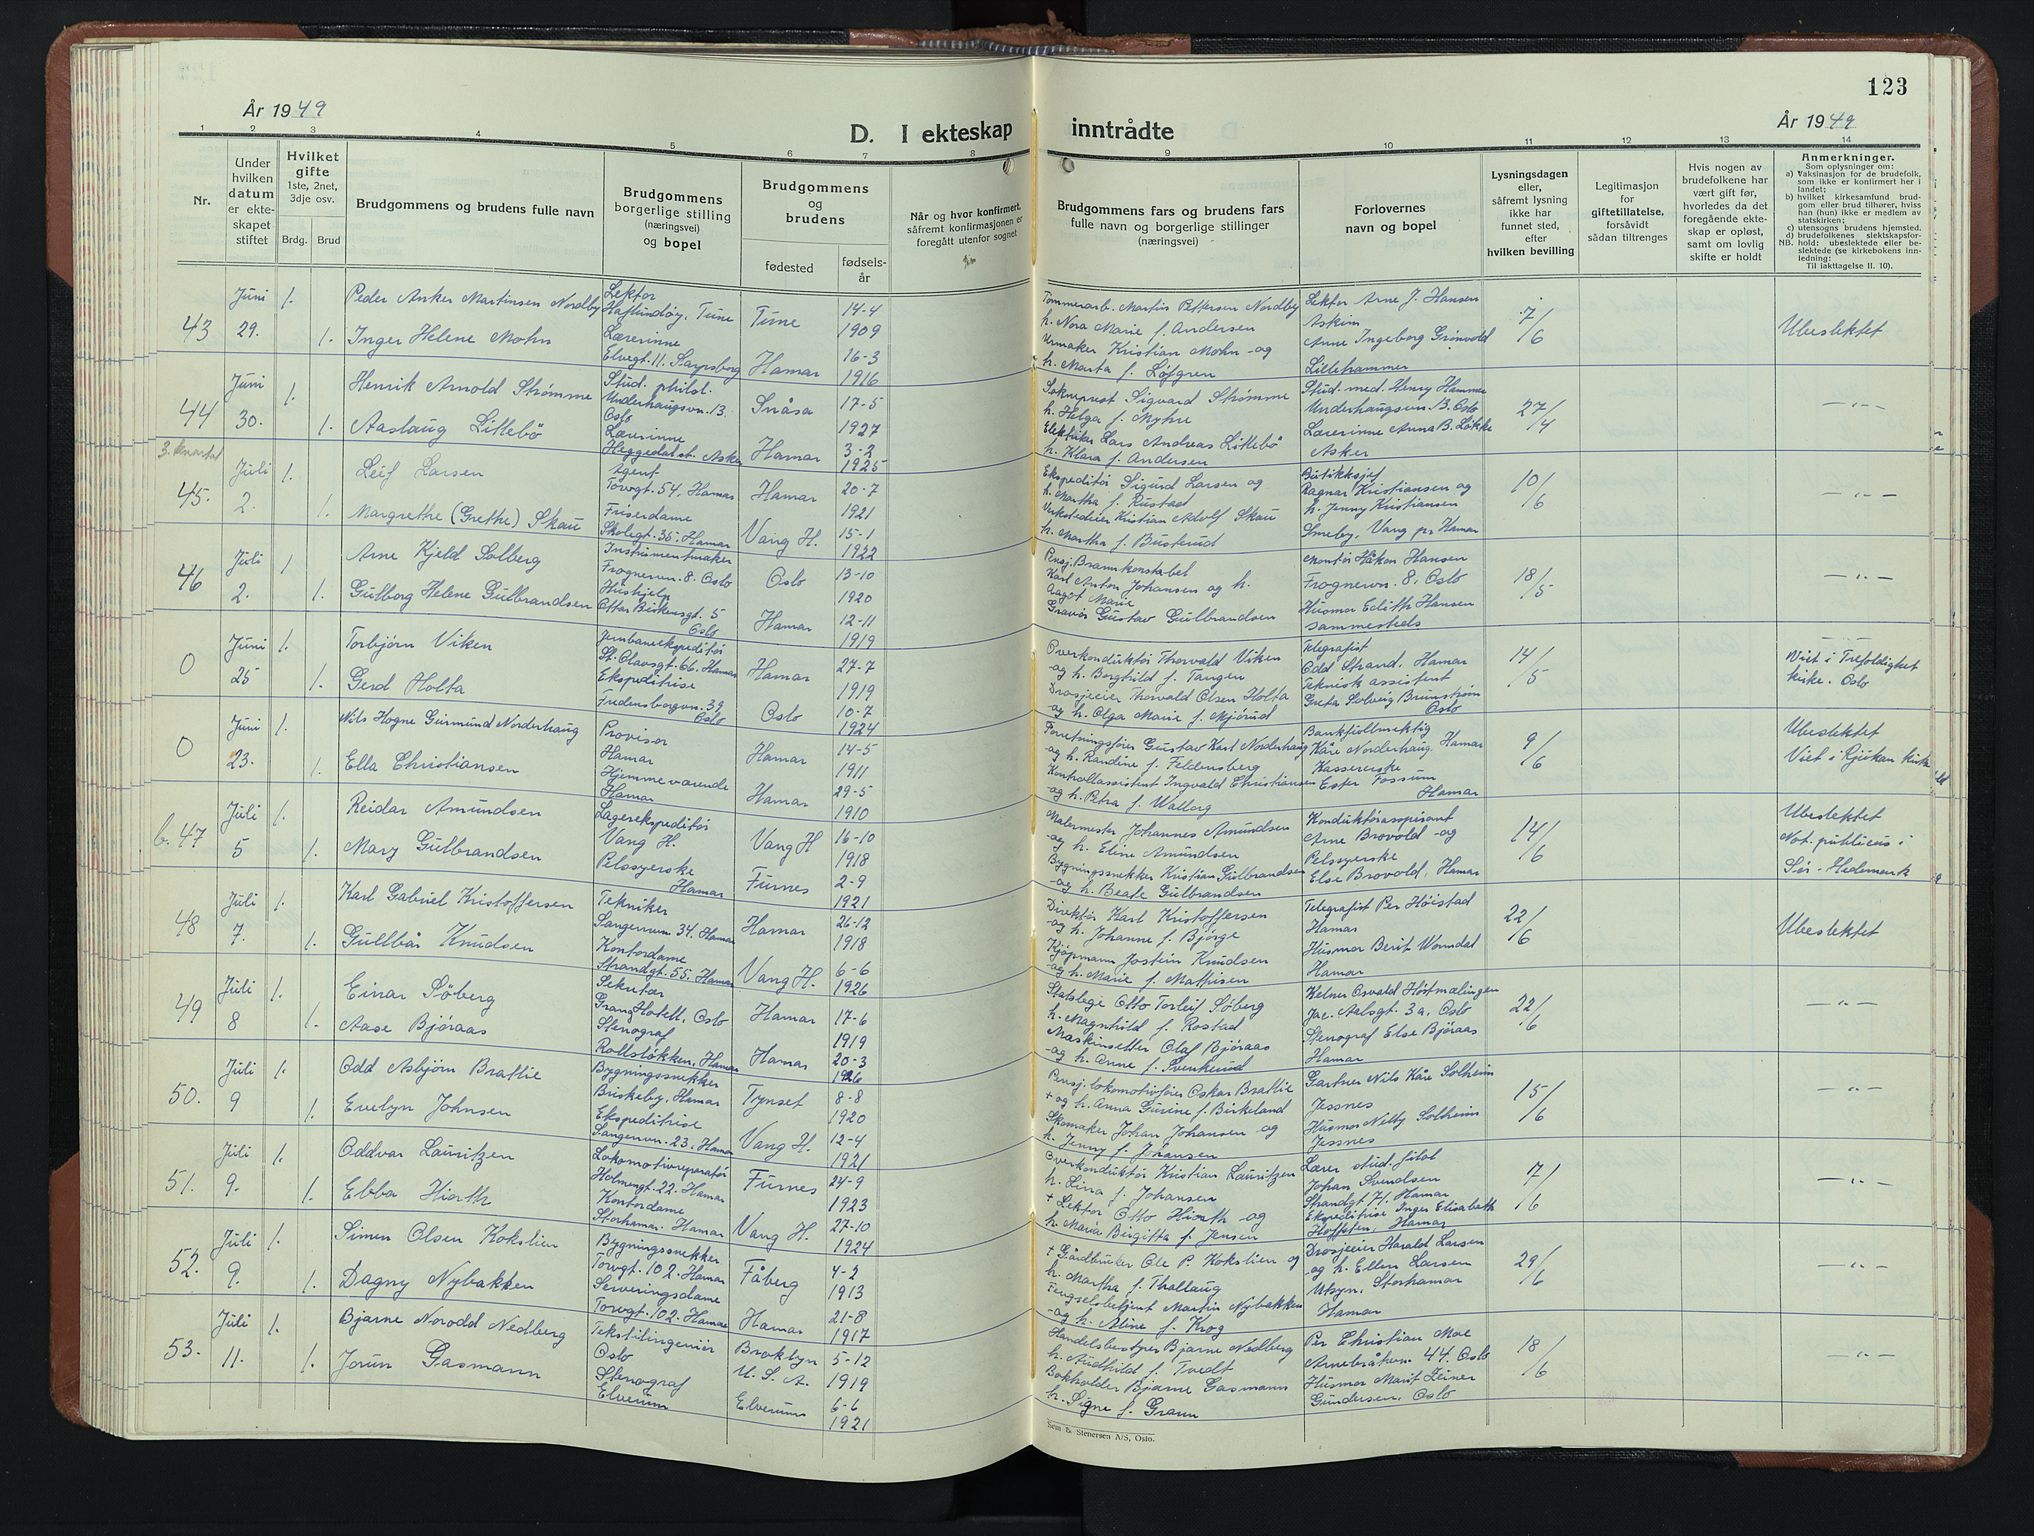 123
År 1949
År 1949
D. I ekteskap inntrådte
1 2 3 4 5 6 7 8 9 10 11 12 13 14
Nr.
Under hvilken datum er ekte-skapet stiftet
Hvilket gifte 1ste, 2net, 3dje osv.
Brdg. Brud
Brudgommens og brudens fulle navn
Brudgommens borgerlige stilling (næringsvei) og bopel
Brudgommens og brudens
fødested
fødsels-år
Når og hvor konfirmert, såfremt konfirmasjonen er foregått utenfor sognet
Brudgommens fars og brudens fars fulle navn og borgerlige stillinger (næringsvei)
Forlovernes navn og bopel
Lysningsdagen eller, såfremt lysning ikke har funnet sted, efter hvilken bevilling
Legitimasjon for giftetillatelse, forsåvidt sådan tiltrenges
Hvis nogen av brudefolkene har vært gift før, hvorledes da det foregående ekte-skap er opløst, samt om lovlig skifte er holdt
Anmerkninger.
Som oplysninger om:
a) Vaksinasjon for de brudefolk, som ikke er konfirmert her i landet;
b) hvilket kirkesamfund brud-gom eller brud tilhører, hviss han (hun) ikke er medlem av statskirken;
c) utensogns brudens hjemsted.
d) brudefolkenes slektskapsfor-
NB. hold: ubeslektede eller be-slektede (se kirkebokens inn-ledning:
Til iakttagelse II. 10).
43 Juni 29. 1. Peder Anker Martinsen Nordby
Lektor Haflundøy, Tune
Tune 14-4 1909
Tømmerarb. Martin Pettersen Nordby h. Nora Marie f. Andersen
Lektor Arne J. Hansen Askim
7/6
Ubeslektet
1. Inger Helene Mohn
Lærerinne Elvegt. 11. Sarpsborg
Hamar 16-3 1916
Urmaker Kristian Mohn og h. Marta f. Løfgren
Anne Ingeborg Grønvold Lillehammer
44 Juni 30. 1. Henrik Arnold Strømme
Stud. philol. Underhaugsvn. 13 Oslo
Snåsa 17-5 1927
Sokneprest Sigvard Strømme h. Helga f. Myhre
Stud. med. Henry Hamme Underhaugsvn. 13. Oslo
27/4
— „ —
1. Aaslaug Littebø
Lærerinne Heggedal st. Asker
Hamar 3-2 1925
Elektriker Lars Andreas Littebø h. Klara f. Andersen
Lærerinne Anna B. Løkke Asker
3. kvartal
45. Juli 2. 1. Leif Larsen
Agent Torvgt. 54, Hamar
Hamar 20-7 1921
Ekspeditør Sigurd Larsen og h. Martha f. Rustad
Butikksjef Ragnar Kristiansen og h. Jenny Kristiansen
10/6
— „ —
1. Margrethe (Grethe) Skau
Friserdame Skolegt. 35. Hamar
Vang H. 15-1 1922
Verkstedeier Kristian Adolf Skau h. Martha f. Busterud
Smeby, Vang pr Hamar
46 Juli 2. 1. Arne Kjeld Solberg
Instrumentmaker Frognervn. 8. Oslo
Oslo 13-10 1920
Pensj. Brannkonstabel Karl Anton Johansen og h. Ragna Marie
Montør Håkon Hansen Frognervn. 8, Oslo
18/5
— „ —
1. Gulborg Helene Gulbrandsen
Hushjelp Ottar Birkensgt. 5 Oslo
Hamar 12-11 1919
Gravør Gustav Gulbrandsen
Husmor Edith Hansen sammesteds
0 Juni 25 1. Torbjørn Viken
Jernbaneekspeditør St. Olavsgt. 66. Hamar
Hamar 27-7 1919
Overkonduktør Thorvald Viken og h. Borghild f. Tangen
Telegrafist Odd Strand, Hamar
14/5
— „ —
Viet i Trefoldighet kirke. Oslo
1. Gerd Holta
Ekspeditrise Fredensborgvn. 39 Oslo
Oslo 10-7 1924
Drosjeeier Thorvald Olsen Holta og h. Olga Marie f. Mjørud
Teknisk assistent Greta Solveig Brunstrøm Oslo
0 Juni 23. 1. Nils Hogne Geirmund Norderhaug
Provisor Hamar
Hamar 14-5 1911
Forretningsfører Gustav Karl Norderhaug og h. Randine f. Feldensberg
Bankfullmektig Kåre Norderhaug, Hamar
9/6
Ubeslektet
Viet i Rjukan kirke
1. Ella Christiansen
Hjemmeværende Hamar
Hamar 29-5 1910
Kontrollassistent Ingvald Christiansen og h. Petra f. Walberg
Kassererske Ester Fossum Hamar
b. 47 Juli 5 1. Reidar Amundsen
Lagerekspeditør Vang H.
Vang H 16-10 1918
Malermester Johannes Amundsen og h. Eline Amundsen
Konduktøraspirant Arne Brovold og
14/6
Ubeslektet
Not. publicus i Sør-Hedemark
1. Mary Gulbrandsen
Pelssyerske Hamar
Furnes 2-9 1921
Bygningssnekker Kristian Gulbrandsen og h. Beate Gulbrandsen
Pelssyerske Else Brovold, Hamar
48 Juli 7. 1. Karl Gabriel Kristoffersen
Tekniker Sangenvn. 34. Hamar
Hamar 26-12 1918
Direktør Karl Kristoffersen og h. Johanne f. Bjørge
Telegrafist Per Høistad Hamar
22/6
Ubeslektet
1. Gullbår Knudsen
Kontordame Strandgt. 55, Hamar
Vang H. 6-6 1926
Kjøpmann Jostein Knudsen og h. Marie f. Mathisen
Husmor Berit Worndal Hamar
49 Juli 8 1. Einar Søberg
Sekretær Grand Hotell, Oslo
Hamar 17-6 1919
Statslege Otto Torleif Søberg h. Magnhild f. Rostad
Kelner Osvald Høstmælingen Jac. Aalsgt. 3a, Oslo
22/6
— „ —
1. Aase Bjøraas
Stenograf Rollsløkken, Hamar
Hamar 20-3 1926
Maskinsetter Olaf Bjøraas og h. Anne f. Svenkerud
Stenograf Else Bjøraas Hamar
50. Juli 9 1. Odd Asbjørn Brattlie
Bygningssnekker Briskeby, Hamar
Tynset 8-8 1920
Pensj. lokomotivfører Oskar Brattlie + og h. Anna Gurine f. Birkeland
Gartner Nils Kåre Solheim Jessnes
15/6
— „ —
1. Evelyn Johnsen
Ekspeditrise Sangenvn. 23, Hamar
Vang H. 12-4 1921
Skomaker Johan Johansen og h. Jenny f. Johansen
Husmor Nelly Solheim Jessnes
51. Juli 9. 1. Oddvar Lauritzen
Lokomotivreparatør Holmengt. 22. Hamar
Furnes 24-9 1923
Overkonduktør Kristian Lauritzen h. Lina f. Johansen
Lærer stud. filol Johan Svendsen Strandgt. 71. Hamar
7/6
— „ —
1. Ebba Hiorth
Kontordame Storhamar. Hamar
Vang H. 27-10 1924
+ Lektor Otto Hiorth og h. Marie Birgitta f. Jensen
Ekspeditrise Inger Elisabeth Hoffsten, Hamar
52. Juli 9. 1. Simen Olsen Kokslien
Bygningssnekker Torvgt. 102. Hamar
Fåberg 4-2 1913
+ Gårdbruker Ole P. Kokslien og h. Martha f. Thallaug
Drosjeeier Harald Larsen og h. Ellen Larsen
29/6
— „ —
1. Dagny Nybakken
Serveringsdame Torvgt. 102. Hamar
Hamar 21-8 1917
Fengselsbetjent Martin Nybakken og h. Aline f. Krog
Utsyn, Storhamar Hamar
53. Juli 11. 1. Bjarne Norodd Nedberg
Tekstilingeniør Oslo
Broklyn U.S.A. 5-12 1919
Handelsbestyrer Bjarne Nedberg h. Audhild f. Tvedt
Per Christian Moe Arnebråtvn. 44. Oslo
18/6
— „ —
1. Jorun Gasmann
Stenograf Elverum
Elverum 6-6 1921
Bokholder Bjarne Gasmann h. Signe f. Gramn
Husmor Marit Zeiner Gundersen, Oslo
Sem & Stenersen A/S, Oslo.